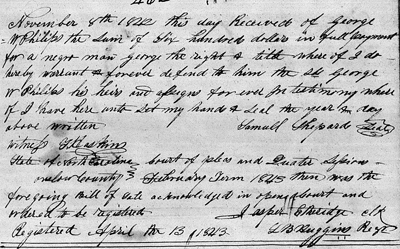 November 8th 1842 this day Received of George
W Philips the Sum of Six hundred dollars in full payment
for a negro man George the right & title where of I do
hereby warrant & forever defend to him the sd George
W Philips his heirs and assigns for ever In testimony where
of I have here unto Set my hand & Seal the year & day
above written Samuel Shepard Seal
Witness
State of North Carolina Court of pleas and Quater Sessions
onslow County February Term 1843 then was the
foregoing Bill of Sale acknowledged in open court and
ordered to be registered Jasper Etheridge Clk
Registered April the 13 1843 Huggins Regr